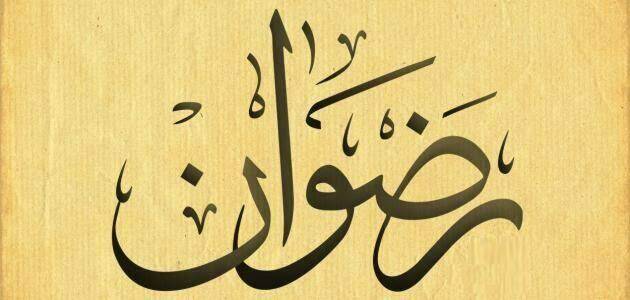 رضوان